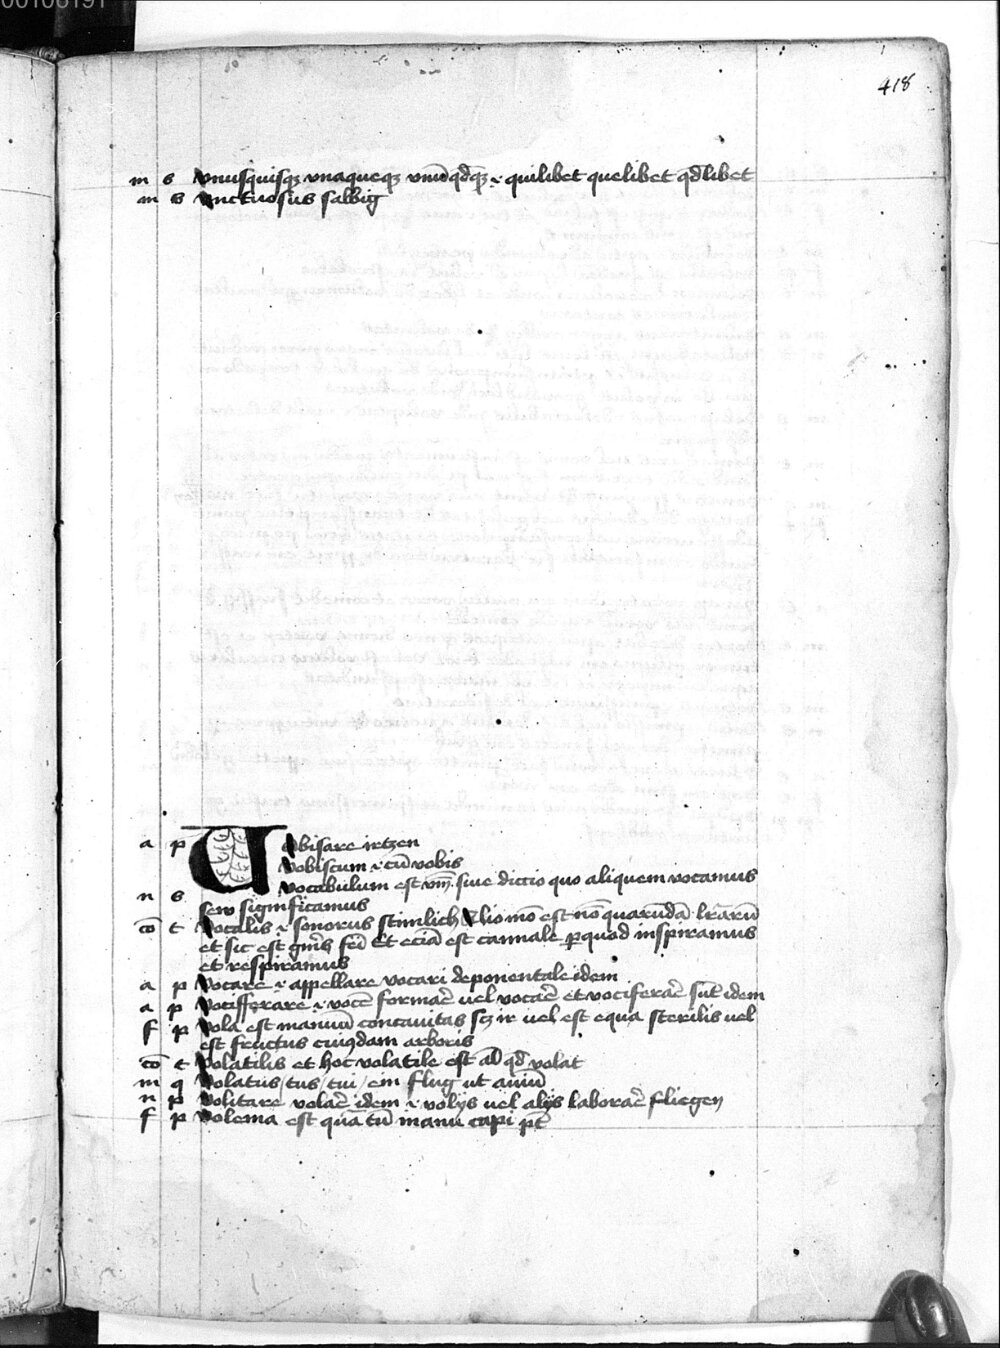 00106191
418
m s vnusquisqꝫ vnaqueqꝫ vnūqdqꝫ ÷ quilibet quelibet qdlibet
m s vnctuosus salbig
a p Vobisare irtzen
vobiscum ÷ cū vobis
n s vocabulum est vm̄ siue dictio quo aliquem vocamus
seu significamus
cō t vocalis ÷ sonorus stimlich Alio mō est nō quarūdā lr̄arū
et sic est gn̄is fei Et eciā est cannale p quod inspiramus
et respiramus
a p vocare ÷ appellare vocari deponentale idem
a p vocifferare ÷ vocē formar̄ uel vocar̄ et vociferar̄ sūt idem
f p vola est manuū concauitas scꝫ ir uel est equa sterilis uel
est fructus cuiqdam arboris
cō t volatilis et hoc volatile est al̄ qd volat
m q volatus/tus/tui/ein flug ut auiū
n p volitare volar̄ idem ÷ volijs uel alijs laborar̄ fliegen
f p volema est quātū manu capi pt̄